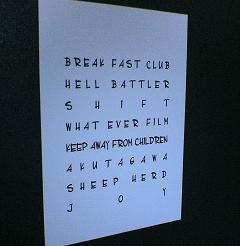 BREAK FAST CLUB
HELL BATTLER
SHIFT
WHAT EVER FILM
KEEP AWAY FROM CHILDREN
AKUTAGAWA
SHEEP HERD
JOY